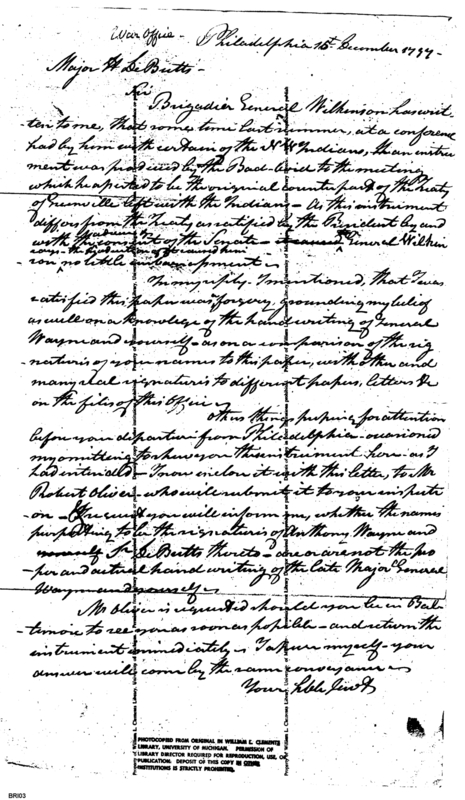 War Office - Philadelphia 15th December 1797 -
Major H DeButts -
Sir
Brigadier General Wilkinson has writ
ten to me, that some time last summer, at a conference
had by him with certain of the N W Indians, that an instru
ment was produced by the Bad-bird to the meeting
which he asserted to be the original counterpart of the Treaty
of Grenville left with the Indians - As this instrument
differs from the Treaty as ratified by the President by and
with the consent of the Senate - General Wilkin
son no little embarrassment
In my reply I mentioned, that I was
satisfied this paper was forgery, grounding my belief
as well on a knowledge of the hand writing of General
Wayne and yourself as on a comparison of the sig
-natures of your names to this paper, with other and
many real signatures to different papers, letters &c
on the files of this Office
other things pressing for attention
before your departure from Philadelphia - occasioned
my omitting to shew you the instrument here - as I
had intended - I now inclose it with this letter, to Mr
Robert Oliver - who will submit it to your inspecti
on - I request you will inform me, whether the names
purporting to be the signatures of Anthony Wayne and
H DeButts thereto - are or are not the pro
per and actual hand writing of the late Major General
Wayne and yourself
Mr Oliver is requested should you be in Bal
timore to see you as soon as possible - and return the
instrument immediately to myself - your
answer will come by the same conveyance
Your Obdt Servt
PHOTOCOPIED FROM ORIGINAL IN WILLIAM L. CLEMENTS
LIBRARY, UNIVERSITY OF MICHIGAN. PERMISSION OF
LIBRARY DIRECTOR REQUIRED FOR REPRODUCTION, USE, OR
PUBLICATION. DEPOSIT OF THIS COPY IN OTHER
INSTITUTIONS IS STRICTLY PROHIBITED.
BRI03